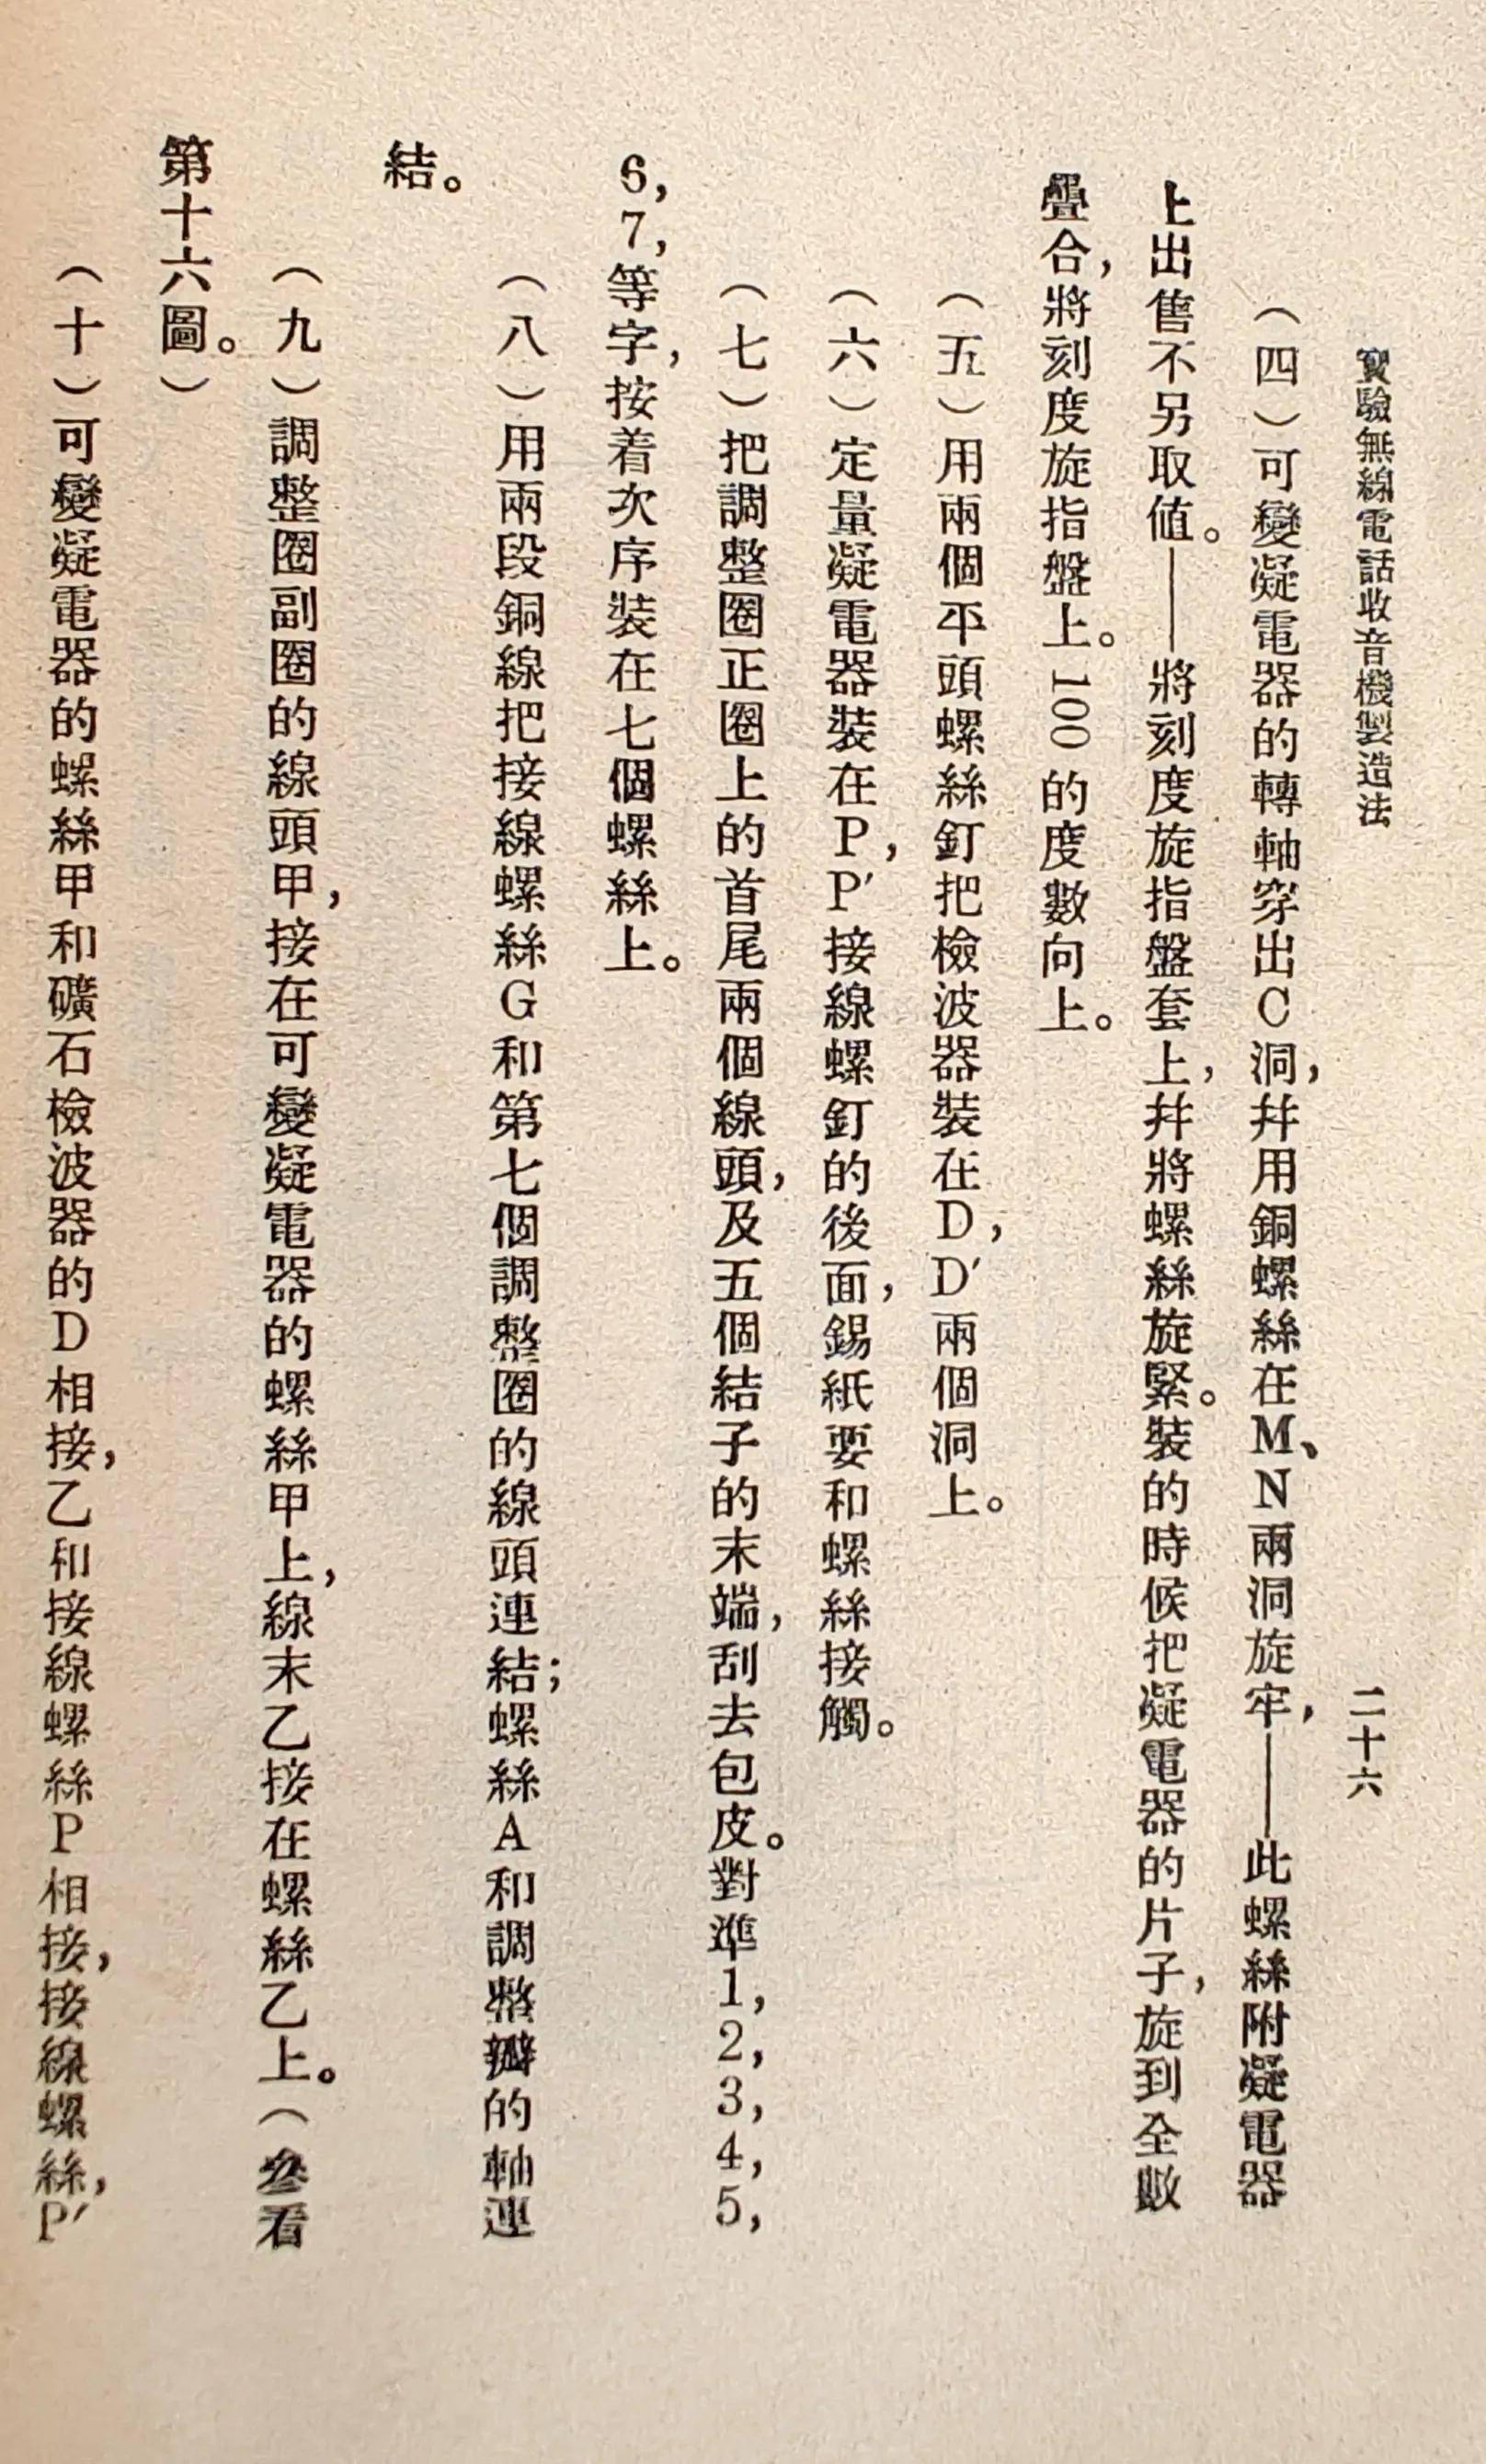 實驗無線電話收音機製造法
二十六
（四）可變凝電器的轉軸穿出C洞，幷用銅螺絲在M、N兩洞旋牢，——此螺絲附凝電器
上出售不另取値。——將刻度旋指盤套上，幷將螺絲旋緊。裝的時候把凝電器的片子，旋到全數
疊合，將刻度旋指盤上。100的度數向上。
（五）用兩個平頭螺絲釘把檢波器裝在D，D′兩個洞上。
（六）定量凝電器裝在P，P′接線螺釘的後面，錫紙要和螺絲接觸。
（七）把調整圈正圈上的首尾兩個線頭，及五個結子的末端，刮去包皮。對準1，2，3，4，5，
6，7，等字，按着次序裝在七個螺絲上。
（八）用兩段銅線把接線螺絲G和第七個調整圈的線頭連結；螺絲A和調整瓣的軸連
結。
（九）調整圈副圈的線頭甲，接在可變凝電器的螺絲甲上，線末乙接在螺絲乙上。（參看
第十六圖。）
（十）可變凝電器的螺絲甲和礦石檢波器的D相接，乙和接線螺絲P相接，接線螺絲，P′